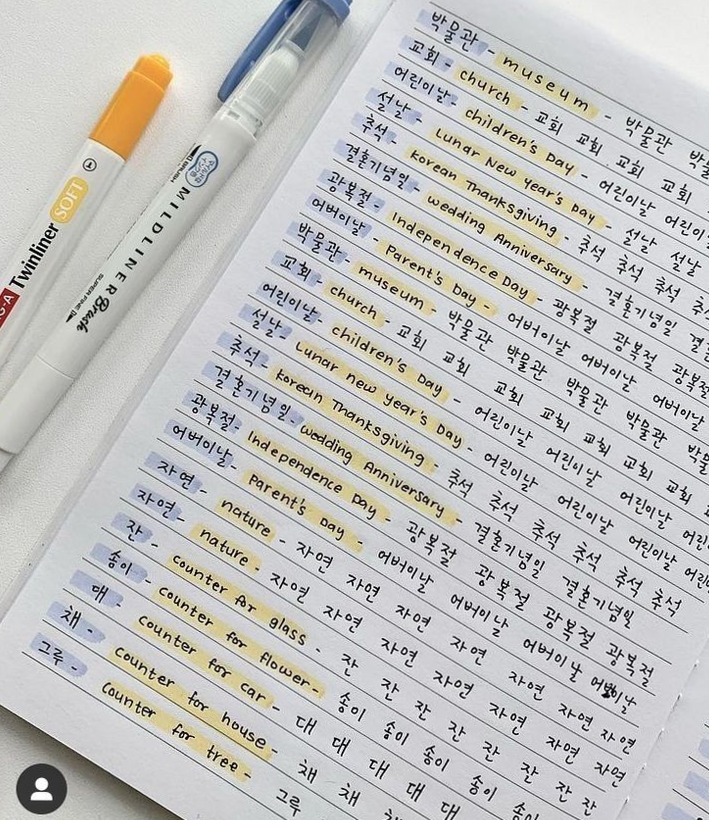 박물관 - museum - 박물관
교회 - church - 교회 교회 교회 교회
어린이날 - children's Day - 어린이날
설날 - Lunar New Year's Day - 설날 설날
추석 - Korean Thanksgiving - 추석 추석 추석
결혼기념일 - wedding Anniversary - 결혼기념일
광복절 - Independence Day - 광복절 광복절 광복절
어버이날 - Parent's Day - 어버이날 어버이날 어버이날
박물관 - museum - 박물관 박물관 박물관 박물관
교회 - church - 교회 교회 교회 교회 교회 교회
어린이날 - children's Day - 어린이날 어린이날 어린이날
설날 - Lunar new year's Day - 어린이날 어린이날 어린이날
추석 - Korean Thanksgiving - 추석 추석 추석 추석 추석 추석
결혼기념일 - wedding Anniversary - 결혼기념일 결혼기념일
광복절 - Independence Day - 광복절 광복절 광복절 광복절
어버이날 - Parent's Day - 어버이날 어버이날 어버이날 어버이날
자연 - nature - 자연 자연 자연 자연 자연 자연 자연
자연 - nature - 자연 자연 자연 자연 자연 자연 자연
잔 - counter for glass - 잔 잔 잔 잔 잔 잔 잔 잔
송이 - counter for flower - 송이 송이 송이 송이
대 - counter for car - 대 대 대 대 대
채 - counter for house - 채 채
그루 - counter for tree - 그루
Twinliner SOFT
MILDLINER Brush